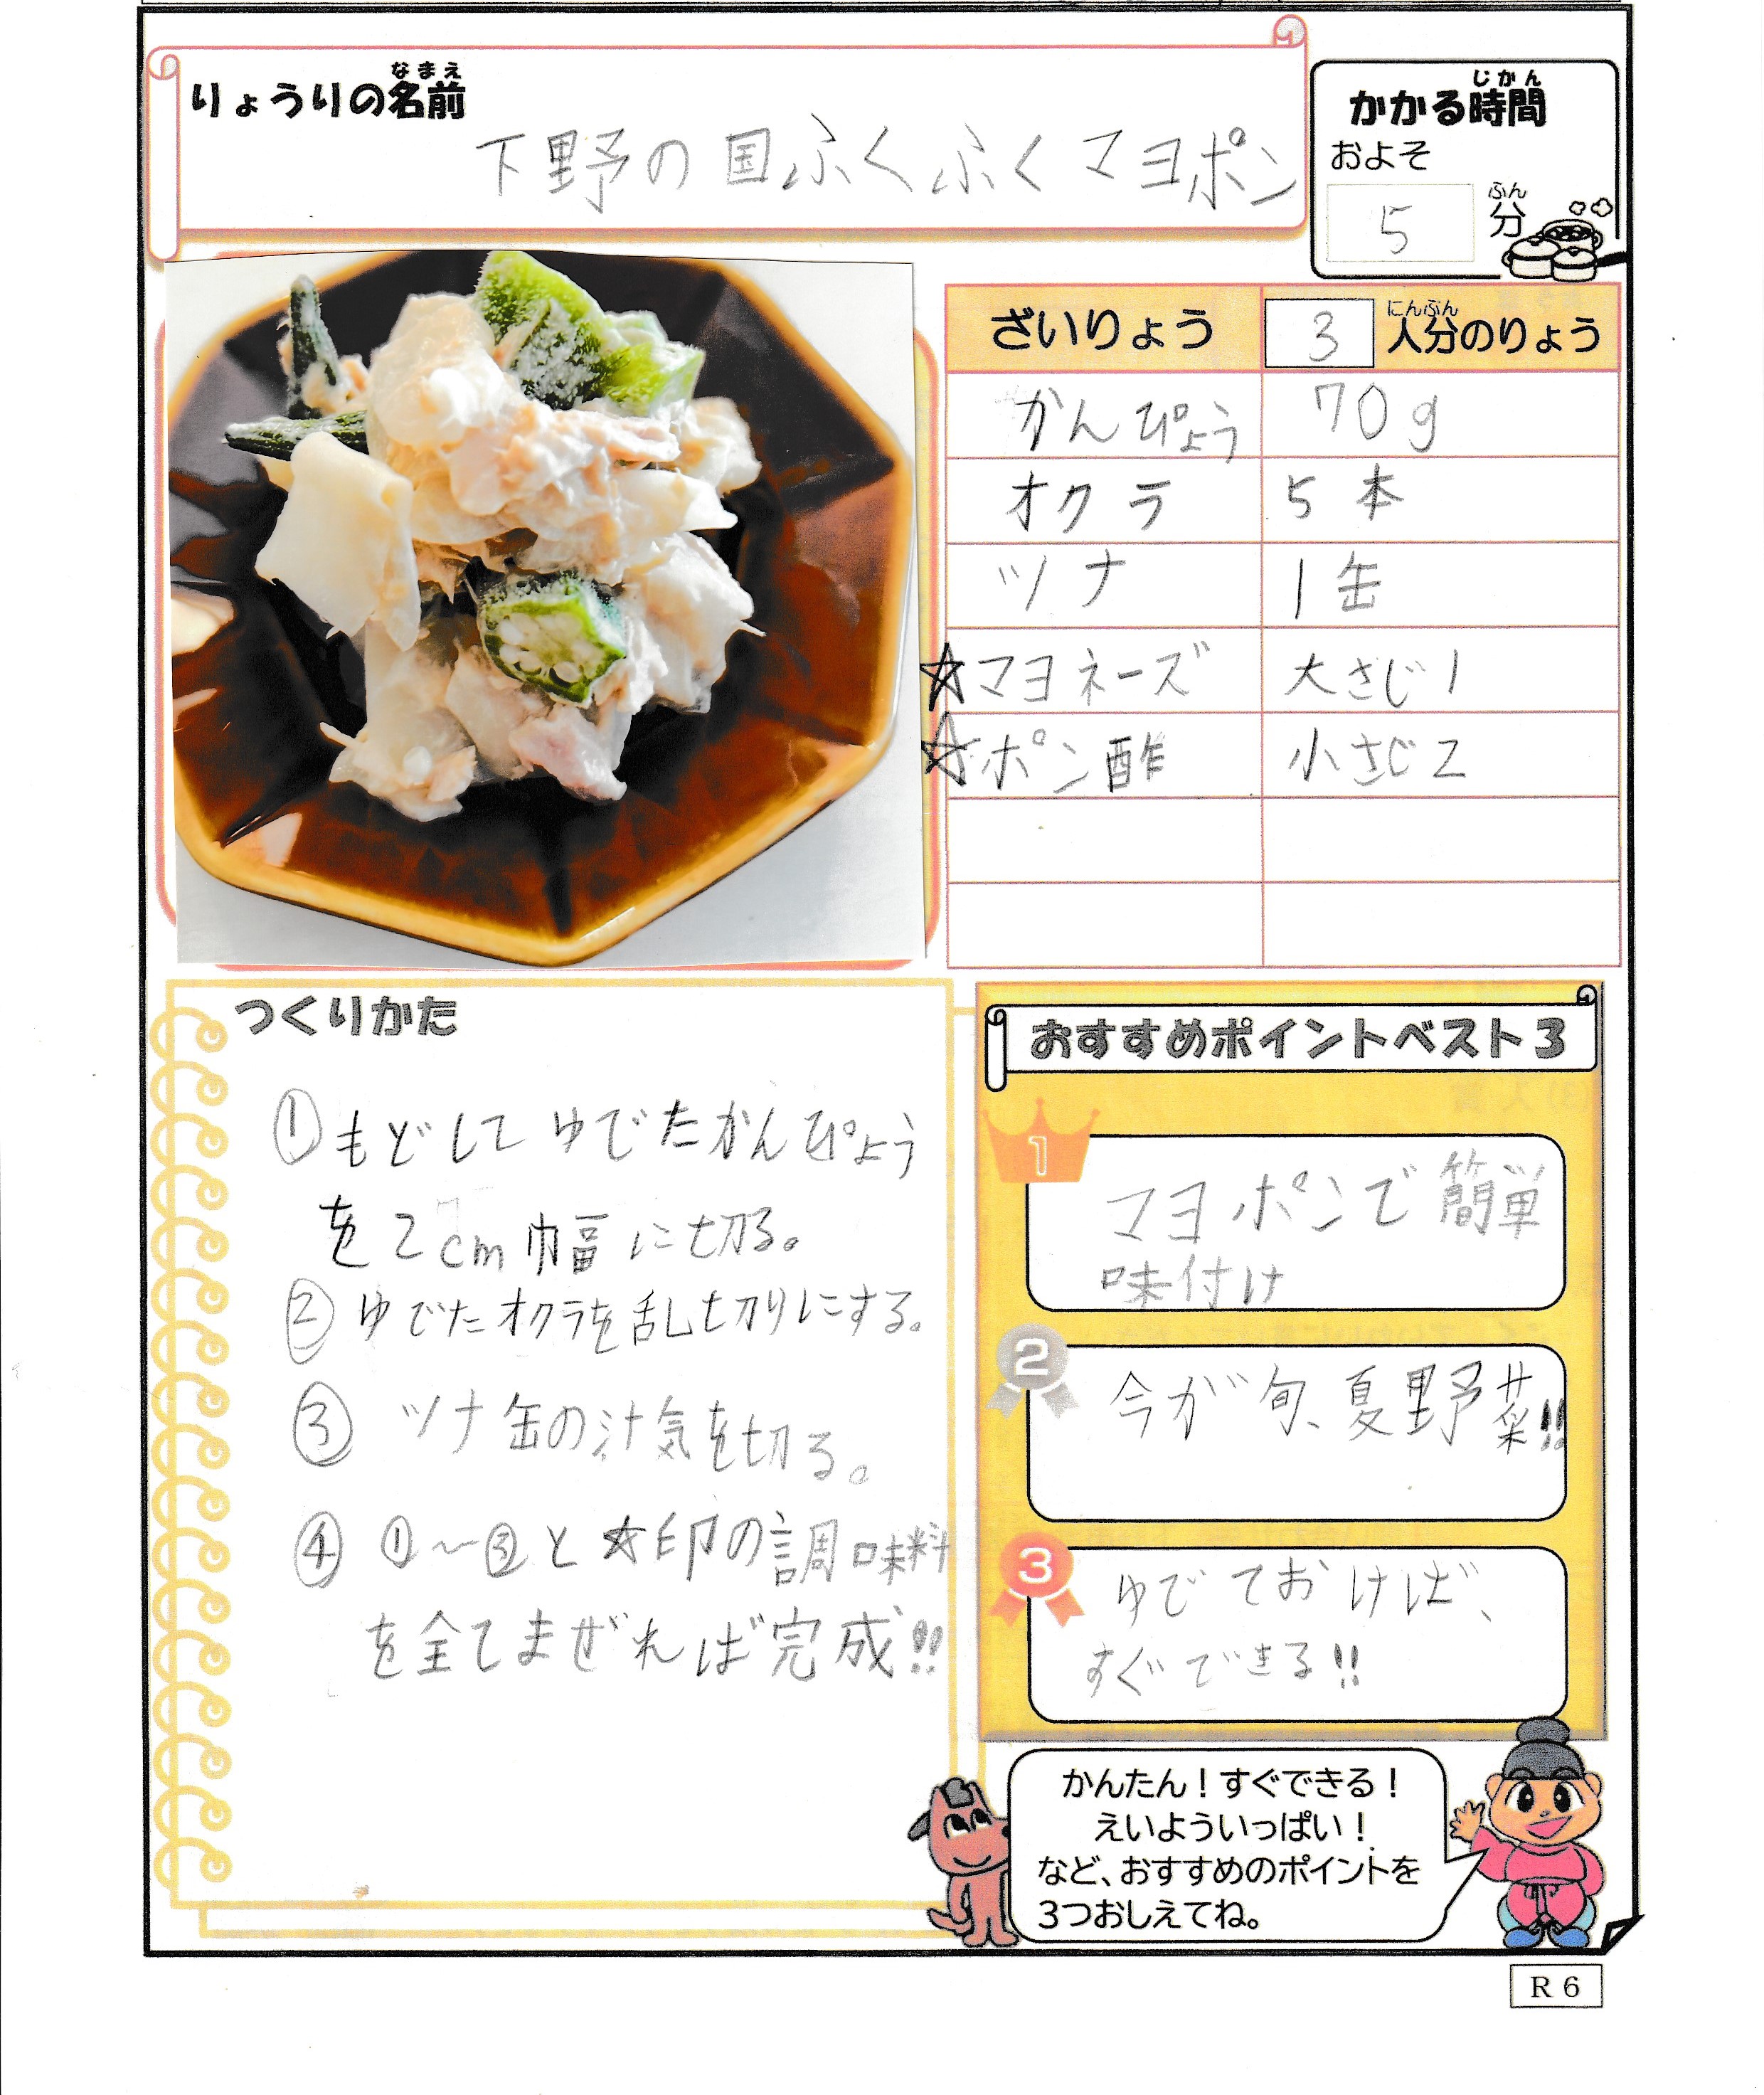 りょうりの名前
なまえ
下野の国ふくふくマヨポン
かかる時間
じかん
およそ
5分
ふん
ざいりょう 3人分のりょう
にんぶん
かんぴょう 70g
オクラ 5本
ツナ 1缶
☆マヨネーズ 大さじ1
☆ポン酢 小さじ2
つくりかた
①もどしてゆでたかんぴょう
を2cm巾畐に切る。
②ゆでたオクラを乱切りにする。
③ツナ缶の汁気を切る。
④①~③と☆印の調味料
を全てまぜれば完成!!
おすすめポイントベスト3
1
マヨポンで簡単
味付け
2
今が旬、夏野菜!!
3
ゆでておけば、
すぐできる!!
かんたん!すぐできる!
えいよういっぱい!
など、おすすめのポイントを
3つおしえてね。
R6